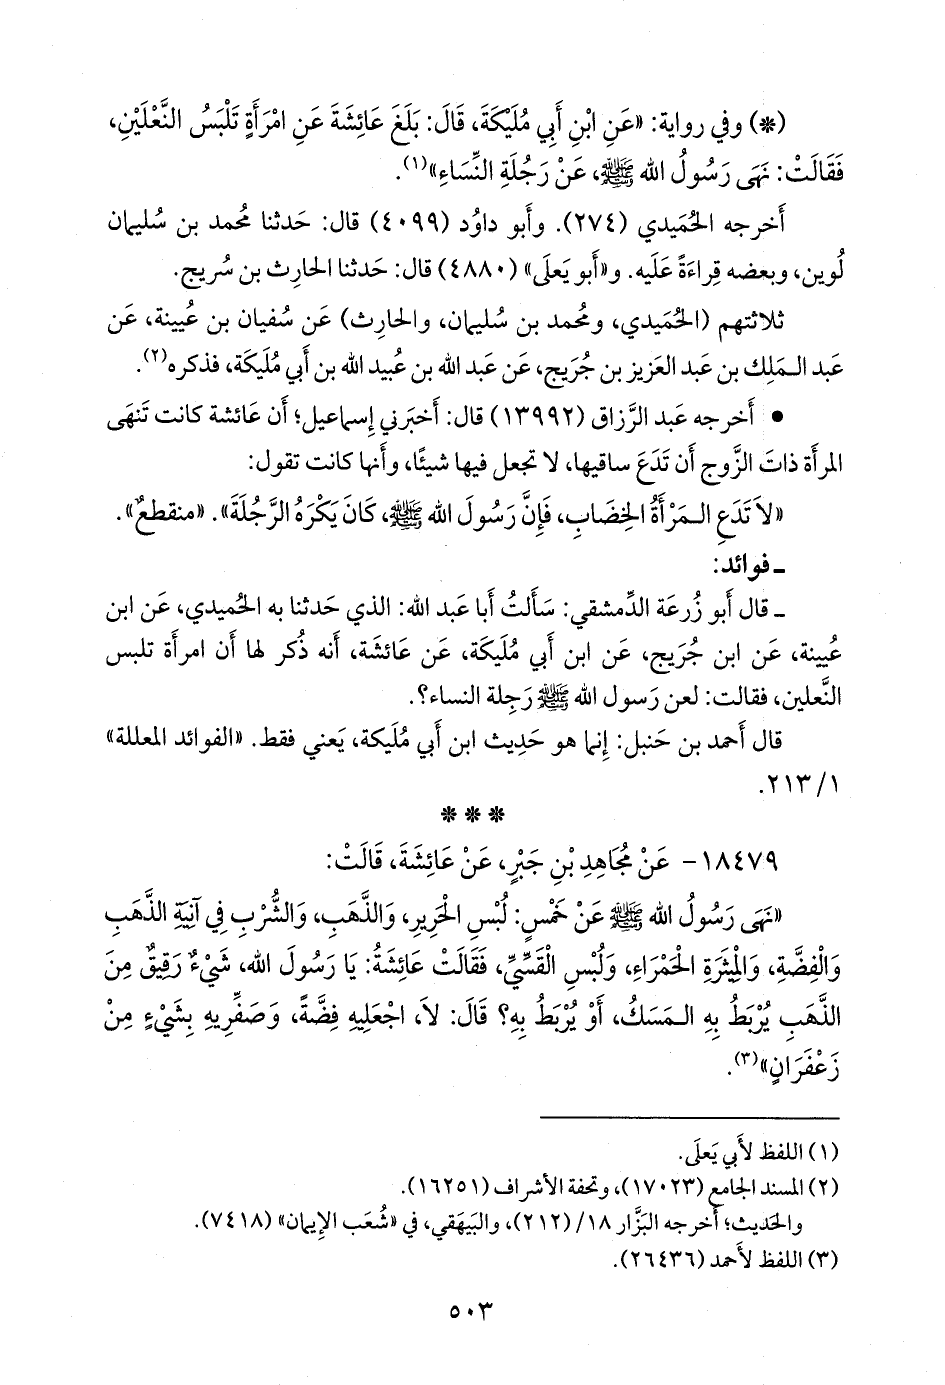 (*) وفي رواية: «عَنِ ابْنِ أَبِي مُلَيْكَةَ، قَالَ: بَلَغَ عَائِشَةَ عَنِ امْرَأَةٍ تَلْبَسُ النَّعْلَيْنِ،
فَقَالَتْ: نَهَى رَسُولُ الله ﷺ، عَنْ رَجُلَةِ النِّسَاءِ»(١).
أَخرجه الحُمَيدي (٢٧٤). وأَبو داوُد (٤٠٩٩) قال: حَدثنا مُحمد بن سُليمان
لُوين، وبعضه قِراءَةً عَلَيه. و«أَبو يَعلَى» (٤٨٨٠) قال: حَدثنا الحارِث بن سُريج.
ثلاثتهم (الحُمَيدي، ومُحمد بن سُليمان، والحارِث) عَن سُفيان بن عُيينة، عَن
عَبد الـمَلِك بن عَبد العزيز بن جُرَيج، عَن عَبد الله بن عُبيد الله بن أَبي مُلَيكة، فذكره(٢).
• أَخرجه عَبد الرَّزاق (١٣٩٩٢) قال: أَخبَرني إِسماعيل؛ أَن عَائشة كانت تَنهَى
المرأَة ذاتَ الزَّوج أَن تَدَعَ ساقيها، لا تجعل فيها شيئًا، وأَنها كانت تقول:
«لاَ تَدَعِ الـمَرْأَةُ الخِضَابِ، فَإِنَّ رَسُولَ الله ﷺ، كَانَ يَكْرَهُ الرَّجُلَةَ». «منقطعٌ».
ـ فوائد:
ـ قال أَبو زُرعَة الدِّمشقي: سَأَلتُ أَبا عَبد الله: الذي حَدثنا به الحُميدي، عَن ابن
عُيينة، عَن ابن جُرَيج، عَن ابن أَبي مُلَيكة، عَن عَائشة، أَنه ذُكر لها أَن امرأَة تلبس
النَّعلين، فقالت: لعن رَسول الله ﷺ رَجِلة النساء؟.
قال أَحمد بن حَنبل: إِنما هو حَدِيث ابن أَبي مُلَيكة، يَعني فقط. «الفوائد المعللة»
١/ ٢١٣.
* * *
١٨٤٧٩- عَنْ مُجَاهِدِ بْنِ جَبْرٍ، عَنْ عَائِشَةَ، قَالَتْ:
«نَهَى رَسُولُ الله ﷺ عَنْ خَمْسٍ: لُبْسِ الْحَرِيرِ، وَالذَّهَبِ، وَالشُّرْبِ فِي آنِيَةِ الذَّهَبِ
وَالْفِضَّةِ، وَالْمِيثَرَةِ الْحَمْرَاءِ، وَلُبْسِ الْقَسِّيِّ، فَقَالَتْ عَائِشَةُ: يَا رَسُولَ الله، شَيْءٌ رَقِيقٌ مِنَ
الذَّهَبِ يُرْبَطُ بِهِ الـمَسَكُ، أَوْ يُرْبَطُ بِهِ؟ قَالَ: لاَ، اجْعَلِيهِ فِضَّةً، وَصَفِّرِيهِ بِشَيْءٍ مِنْ
زَعْفَرَانٍ»(٣).
(١) اللفظ لأَبي يَعلَى.
(٢) المسند الجامع (١٧٠٢٣)، وتحفة الأشراف (١٦٢٥١).
والحَديث؛ أَخرجه البَزَّار ١٨/ (٢١٢)، والبَيهَقي، في «شُعَب الإيمان» (٧٤١٨).
(٣) اللفظ لأَحمد (٢٦٤٣٦).
٥٠٣